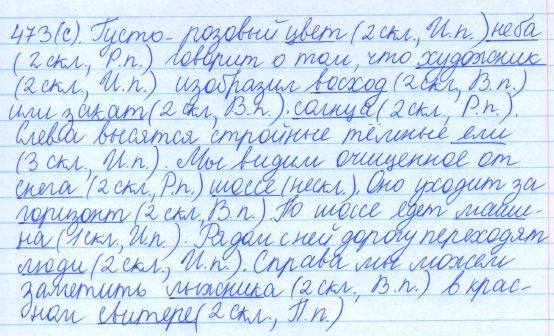 473(с). Густо-розовый цвет (2 скл., И.п.) неба
(2 скл., Р.п.) говорит о том, что художник
(2 скл., И.п.) изобразил восход (2 скл., В.п.)
или закат (2 скл., В.п.) солнца (2 скл., Р.п.).
Слева высятся стройные тёмные ели
(3 скл., И.п.). Мы видим очищенное от
снега (2 скл., Р.п.) шоссе (нескл.). Оно уходит за
горизонт (2 скл., В.п.). По шоссе едет маши-
на (1 скл., И.п.). Рядом с ней дорогу переходят
люди (2 скл., И.п.). Справа мы можем
заметить лыжника (2 скл., В.п.) в крас-
ном свитере (2 скл., П.п.)